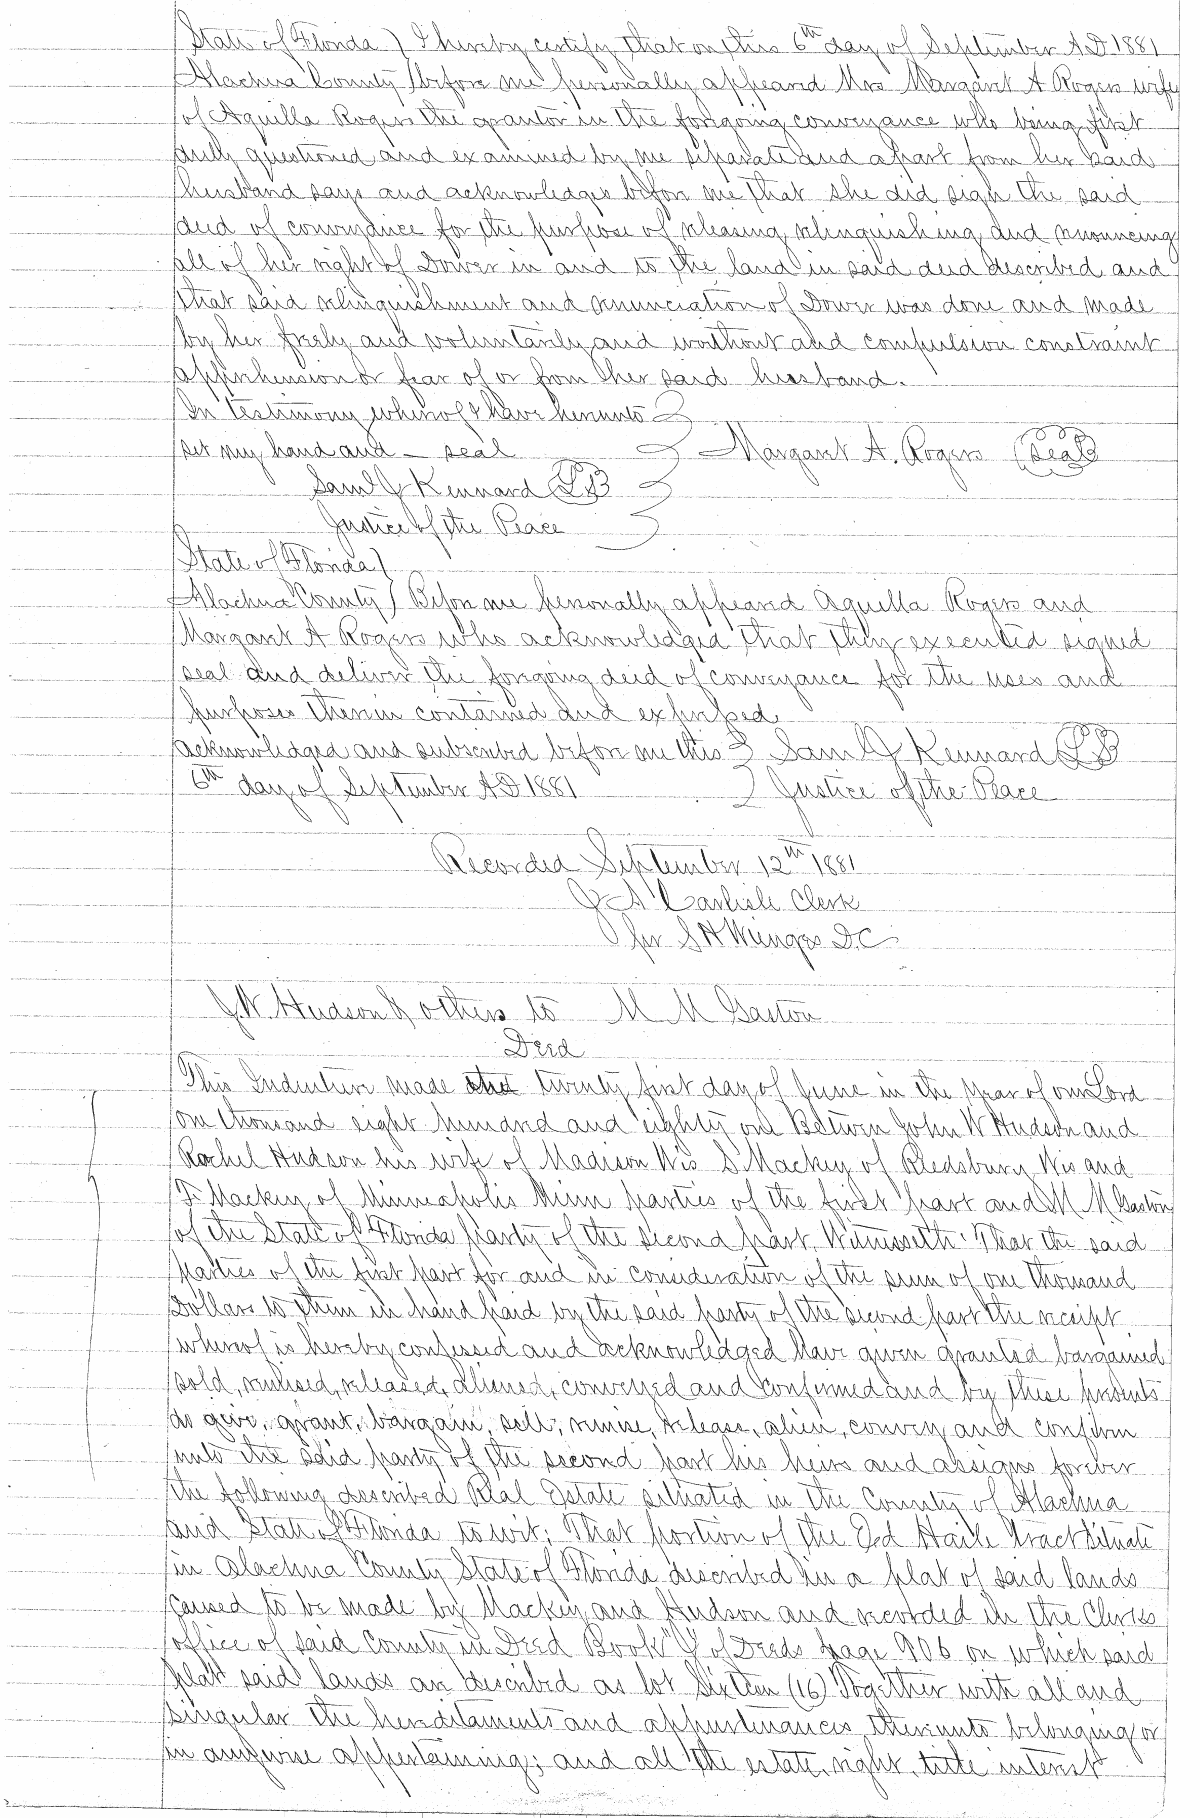 State of Florida ) I hereby certify that on this 6th day of September A.D. 1881
Alachua County ) before me personally appeared Mrs Margaret A Rogers wife
of Aquilla Rogers the grantor in the foregoing conveyance who being first
duly questioned and examined by me separate and apart from her said
husband says and acknowledges before me that she did sign the said
deed of conveyance for the purpose of releasing relinquishing and renouncing
all of her right of Dower in and to the land in said deed described and
that said relinquishment and renunciation of Dower was done and made
by her freely and voluntarily and worthout and compulsion constraint
apprehension or fear of or from her said husband.
In testimony whereof I have hereunto
set my hand and — seal Margaret A. Rogers (Seal)
Saml J Kennard
Justice of the Peace
State of Florida )
Alachua County ) Before me personally appeared Aquilla Rogers and
Margaret A Rogers who acknowledged that they executed signed
seal and deliver the foregoing deed of conveyance for the uses and
purposes therein contained and expressed.
Acknowledged and subscribed before me this Saml J Kennard
6th day of September A.D 1881 Justice of the Peace
Recorded September 12th 1881
J A Carlisle Clerk
per S H Wienges D.C
J.W. Hudson & others to M M Gaston
Deed
This Indenture made the twenty first day of June in the year of our Lord
one thousand eight hundred and eighty one Between John W Hudson and
Rachel Hudson his wife of Madison Wis S Mackey of Reedsburg Wis and
F Mackey of Minneapolis Minn parties of the first part and M M Gaston
of the State of Florida party of the second part, Witnesseth: That the said
parties of the first part for and in consideration of the sum of one thousand
Dollars to them in hand paid by the said party of the second part the receipt
whereof is hereby confessed and acknowledged have given granted bargained
sold, remised, released, aliened, conveyed and confirmed and by these presents
do give, grant, bargain, sell, remise, release, alien, convey and confirm
unto the said party of the second part his heirs and assigns forever
the following described Real Estate situated in the County of Alachua
and State of Florida to wit; That portion of the Ed Haile tract situate
in Alachua County State of Florida described in a plat of said lands
caused to be made by Mackey and Hudson and recorded in the Clerks
office of said County in Deed Book of Deeds page 906 on which said
plat said lands are described as lot Sixteen (16) Together with all and
singular the hereditaments and appurtenances thereunto belonging or
in anywise appertaining; and all the estate, right, title interest